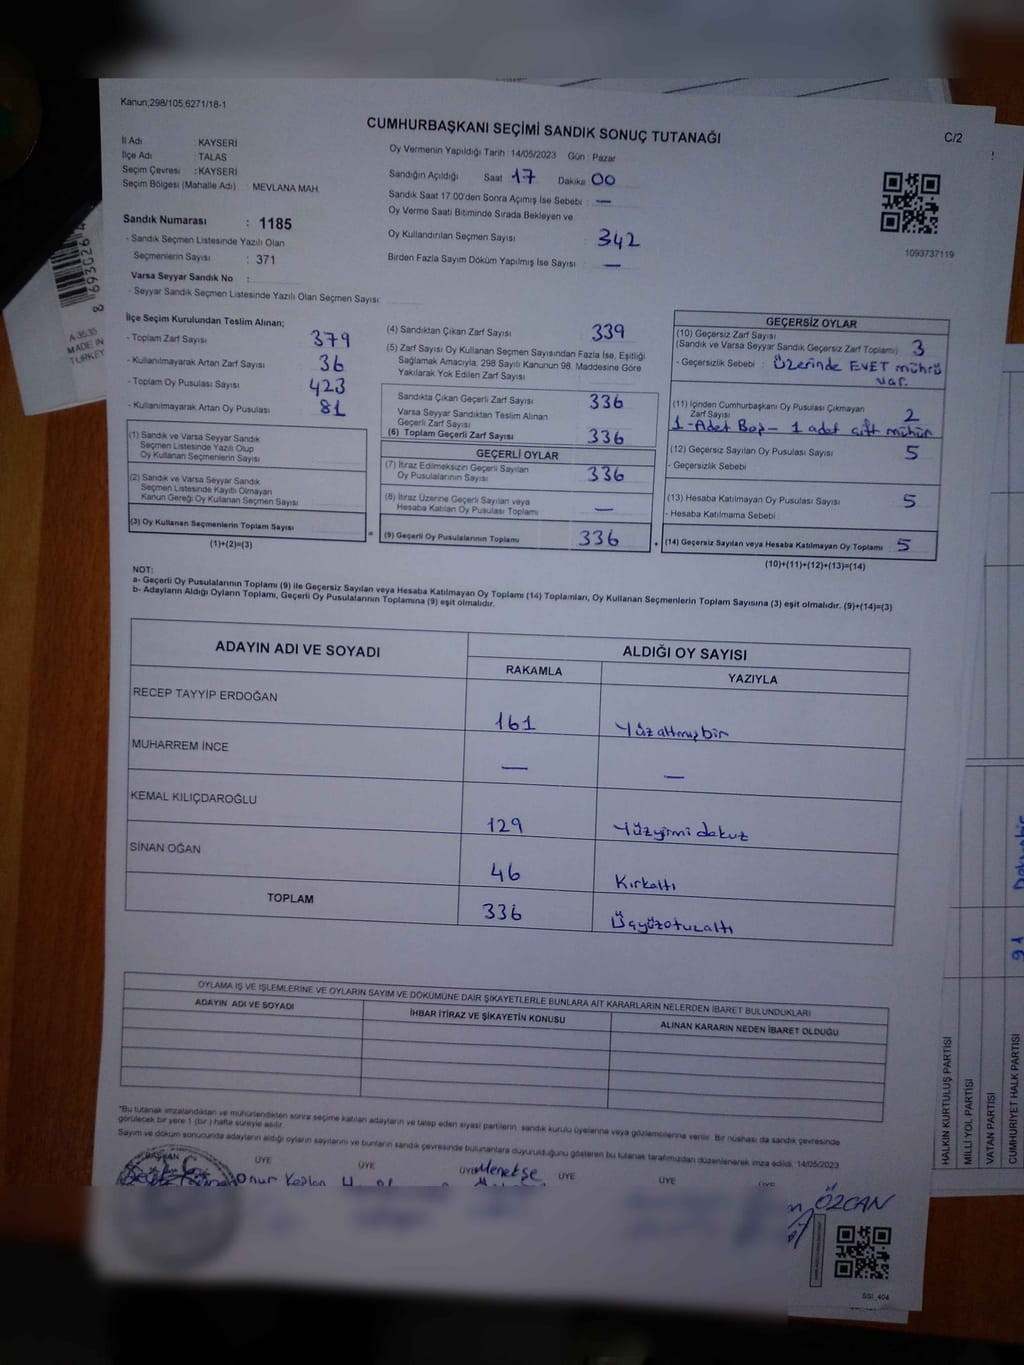 Kanun;298/105,6271/18-1
CUMHURBAŞKANI SEÇİMİ SANDIK SONUÇ TUTANAĞI
C/2
İl Adı : KAYSERİ
İlçe Adı : TALAS
Seçim Çevresi : KAYSERİ
Seçim Bölgesi (Mahalle Adı) : MEVLANA MAH.
Sandık Numarası : 1185
- Sandık Seçmen Listesinde Yazılı Olan
Seçmenlerin Sayısı : 371
Varsa Seyyar Sandık No :
- Seyyar Sandık Seçmen Listesinde Yazılı Olan Seçmen Sayısı:
Oy Vermenin Yapıldığı Tarih : 14/05/2023 Gün : Pazar
Sandığın Açıldığı Saat 17 Dakika 00
Sandık Saat 17:00'den Sonra Açımış İse Sebebi : —
Oy Verme Saati Bitiminde Sırada Bekleyen ve
Oy Kullandırılan Seçmen Sayısı 342
Birden Fazla Sayım Döküm Yapılmış İse Sayısı : —
1093737119
A-3535
MADE IN
TURKEY
İlçe Seçim Kurulundan Teslim Alınan;
- Toplam Zarf Sayısı 379
- Kullanılmayarak Artan Zarf Sayısı 36
- Toplam Oy Pusulası Sayısı 423
- Kullanılmayarak Artan Oy Pusulası 81
(1) Sandık ve Varsa Seyyar Sandık
Seçmen Listesinde Yazılı Olup
Oy Kullanan Seçmenlerin Sayısı
(2) Sandık ve Varsa Seyyar Sandık
Seçmen Listesinde Kayıtlı Olmayan
Kanun Gereği Oy Kullanan Seçmen Sayısı
(3) Oy Kullanan Seçmenlerin Toplam Sayısı =
(1)+(2)=(3)
(4) Sandıktan Çıkan Zarf Sayısı 339
(5) Zarf Sayısı Oy Kullanan Seçmen Sayısından Fazla İse, Eşitliği
Sağlamak Amacıyla, 298 Sayılı Kanunun 98. Maddesine Göre
Yakılarak Yok Edilen Zarf Sayısı
Sandıkta Çıkan Geçerli Zarf Sayısı 336
Varsa Seyyar Sandıktan Teslim Alınan
Geçerli Zarf Sayısı
(6) Toplam Geçerli Zarf Sayısı 336
GEÇERLİ OYLAR
(7) İtiraz Edilmeksizin Geçerli Sayılan
Oy Pusulalarının Sayısı 336
(8) İtiraz Üzerine Geçerli Sayılan veya
Hesaba Katılan Oy Pusulası Toplamı —
(9) Geçerli Oy Pusulalarının Toplamı 336 +
GEÇERSİZ OYLAR
(10) Geçersiz Zarf Sayısı
(Sandık ve Varsa Seyyar Sandık Geçersiz Zarf Toplamı) 3
- Geçersizlik Sebebi : Üzerinde EVET mührü
var.
(11) İçinden Cumhurbaşkanı Oy Pusulası Çıkmayan
Zarf Sayısı 2
1-Adet Boş- 1 adet çift mühür
(12) Geçersiz Sayılan Oy Pusulası Sayısı 5
- Geçersizlik Sebebi
(13) Hesaba Katılmayan Oy Pusulası Sayısı 5
- Hesaba Katılmama Sebebi :
(14) Geçersiz Sayılan veya Hesaba Katılmayan Oy Toplamı 5
(10)+(11)+(12)+(13)=(14)
NOT:
a- Geçerli Oy Pusulalarının Toplamı (9) ile Geçersiz Sayılan veya Hesaba Katılmayan Oy Toplamı (14) Toplamları, Oy Kullanan Seçmenlerin Toplam Sayısına (3) eşit olmalıdır. (9)+(14)=(3)
b- Adayların Aldığı Oyların Toplamı, Geçerli Oy Pusulalarının Toplamına (9) eşit olmalıdır.
ADAYIN ADI VE SOYADI ALDIĞI OY SAYISI
RAKAMLA YAZIYLA
RECEP TAYYİP ERDOĞAN 161 Yüzaltmışbir
MUHARREM İNCE — —
KEMAL KILIÇDAROĞLU 129 Yüzyirmidokuz
SİNAN OĞAN 46 Kırkaltı
TOPLAM 336 Üçyüzotuzaltı
OYLAMA İŞ VE İŞLEMLERİNE VE OYLARIN SAYIM VE DÖKÜMÜNE DAİR ŞİKAYETLERLE BUNLARA AİT KARARLARIN NELERDEN İBARET BULUNDUKLARI
ADAYIN ADI VE SOYADI İHBAR İTİRAZ VE ŞİKAYETİN KONUSU ALINAN KARARIN NEDEN İBARET OLDUĞU
*Bu tutanak imzalandıktan ve mühürlendikten sonra seçime katılan adayların ve talep eden siyasi partilerin sandık kurulu üyelerine veya gözlemcilerine verilir. Bir nüshası da sandık çevresinde
görülecek bir yere 1 (bir) hafta süreyle asılır.
Sayım ve döküm sonucunda adayların aldığı oyların sayılarını ve bunların sandık çevresinde bulunanlara duyurulduğunu gösteren bu tutanak tarafımızdan düzenlenerek imza edildi. 14/05/2023
BAŞKAN ÜYE ÜYE ÜYE ÜYE ÜYE
Onur Kaplan Menekşe
ÖZCAN
SSI_404
HALKIN KURTULUŞ PARTİSİ
MİLLİ YOL PARTİSİ
VATAN PARTİSİ
CUMHURİYET HALK PARTİSİ
91